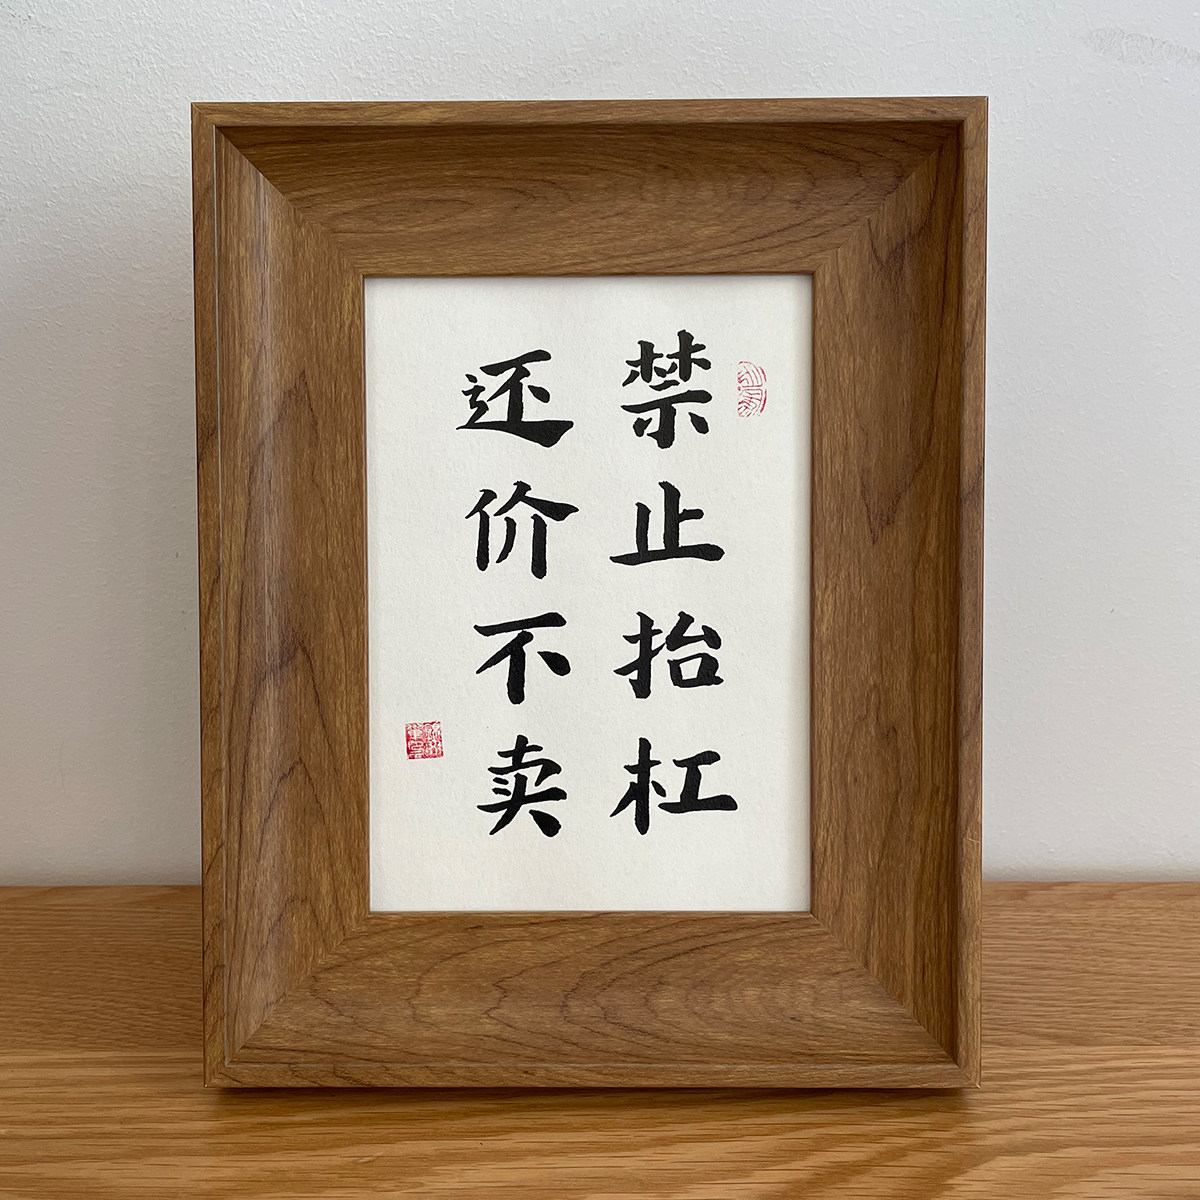 禁止抬杠
还价不卖